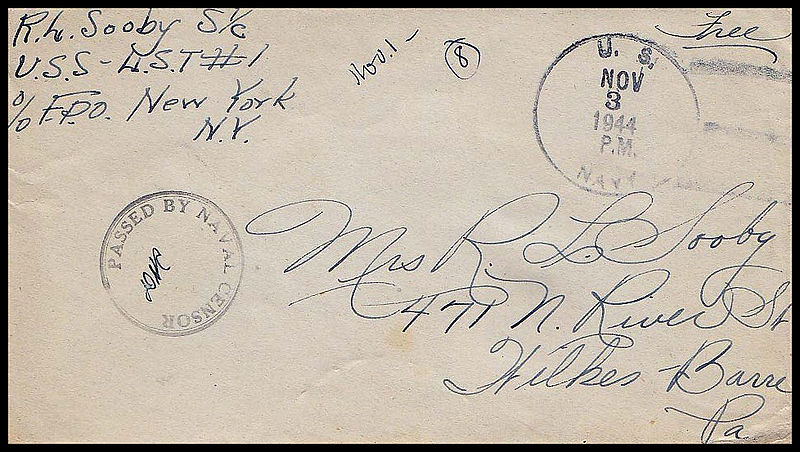 R.L. Sooby S 1/c
U.S.S - L.S.T #1
c/o F.P.O. New York
N.Y.
Nov. 1 -
8
Free
U. S.
NOV
3
1944
P.M.
NAVY
PASSED BY NAVAL CENSOR
Mrs R. L. Sooby
471 N. River St
Wilkes-Barre
Pa.